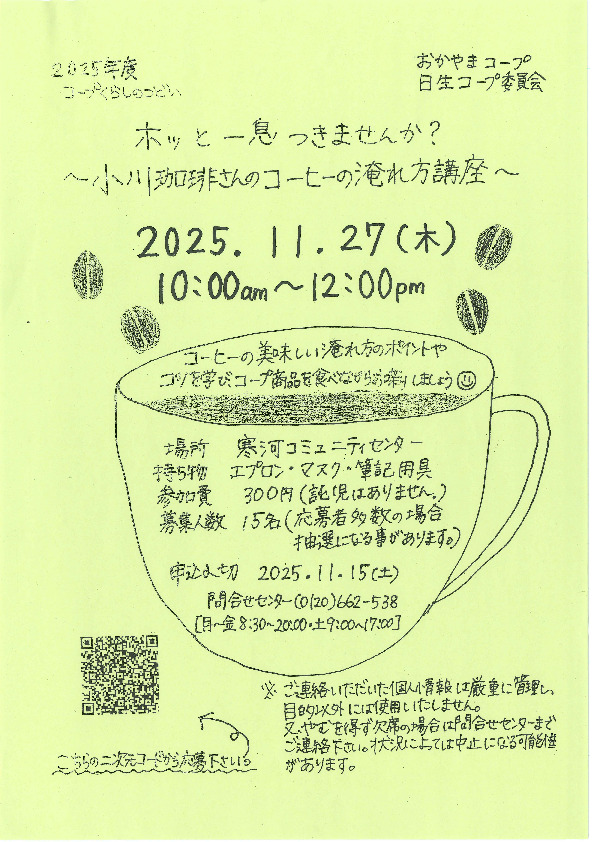 2025年度
コープくらしのつどい
おかやまコープ
日生コープ委員会
ホッと一息つきませんか？
～小川珈琲さんのコーヒーの淹れ方講座～
2025.11.27(木)
10:00am～12:00pm
コーヒーの美味しい淹れ方のポイントや
コツを学びコープ商品を食べながらお喋りしましょう
場所 寒河コミュニティセンター
持ち物 エプロン・マスク・筆記用具
参加費 300円(託児はありません。)
募集人数 15名(応募者多数の場合
抽選になる事があります。)
申込〆切 2025.11.15(土)
問合せセンター(0120)662-538
[月～金8:30～20:00・土9:00～17:00]
※ ご連絡いただいた個人情報は厳重に管理し、
目的以外には使用いたしません。
又、やむを得ず欠席の場合は問合せセンターまで
ご連絡下さい。状況によっては中止になる可能性
があります。
こちらの二次元コードから応募下さい。